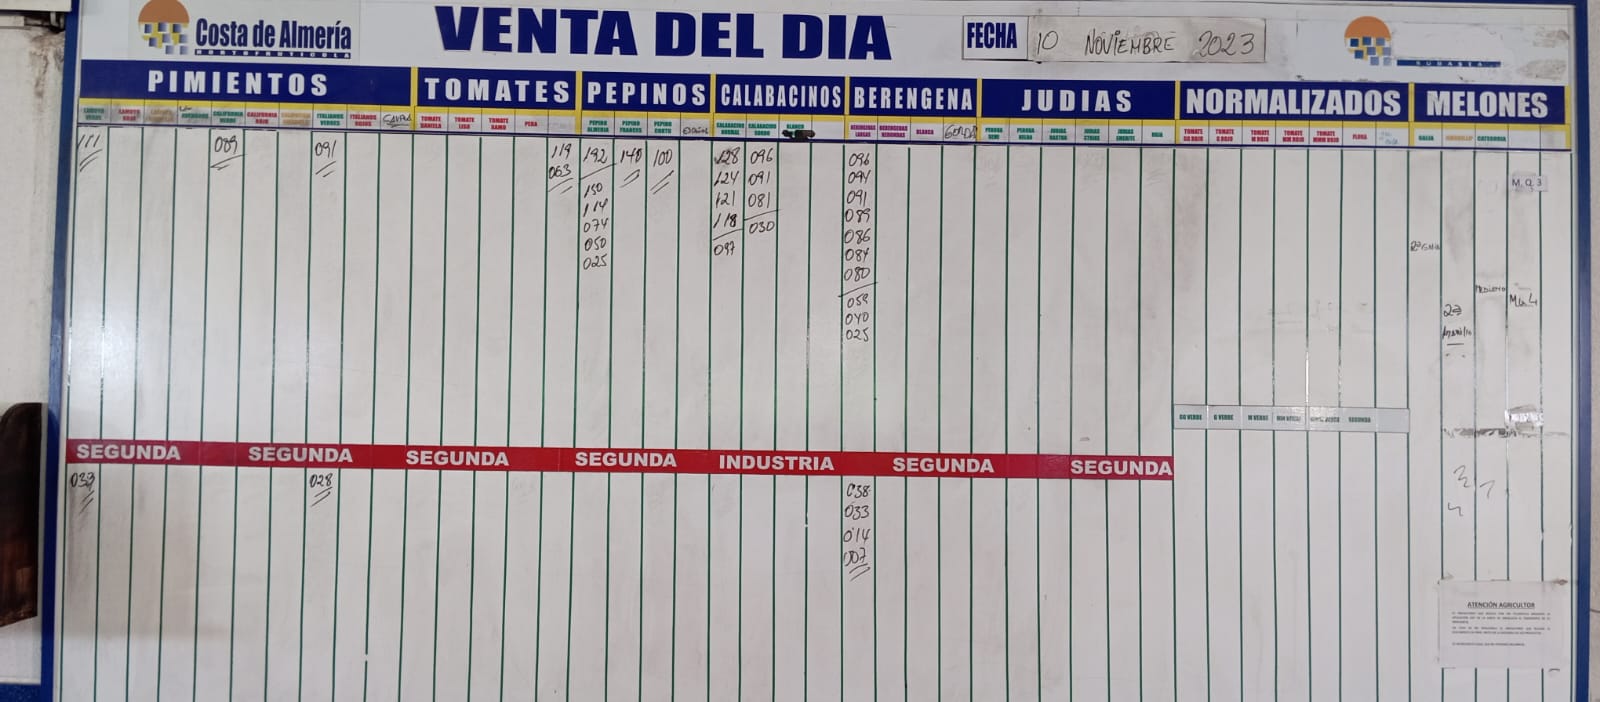 Costa de Almería
HORTOFRUTICOLA
VENTA DEL DIA
FECHA 10 NOVIEMBRE 2023
SUBASTA
PIMIENTOS TOMATES PEPINOS CALABACINOS BERENGENA JUDIAS NORMALIZADOS MELONES
LAMUYO VERDE LAMUYO ROJO CALIFORNIA VERDE CALIFORNIA ROJO ITALIANOS VERDES ITALIANOS ROJOS TOMATE DANIELA TOMATE LISO TOMATE RAMO PERA PEPINO ALMERIA PEPINO FRANCES PEPINO CORTO CALABACINO NORMAL CALABACINO GORDO BLANCO BERENGENAS LARGAS BERENGENAS REDONDAS BLANCA GORDA PERONA SEMI PERONA ROJA JUDIAS RASTRA JUDIAS STRIKE JUDIAS EMERITE ROJA TOMATE GG ROJO TOMATE G ROJO TOMATE M ROJO TOMATE MM ROJO TOMATE MMM ROJO FLORA GALIA AMARILLO CATEGORIA
111 089 091 119 192 140 100 128 096 096
063 150 124 091 094
114 121 081 091
074 118 030 089
050 097 086
025 084
080
059
040
025
M.Q.3
MEDIANO
M.Q.4
2ª
AMARILLO
GG VERDE G VERDE M VERDE MM VERDE SEGUNDA
SEGUNDA SEGUNDA SEGUNDA SEGUNDA INDUSTRIA SEGUNDA SEGUNDA
033 028 038
033
014
007
ATENCIÓN AGRICULTOR